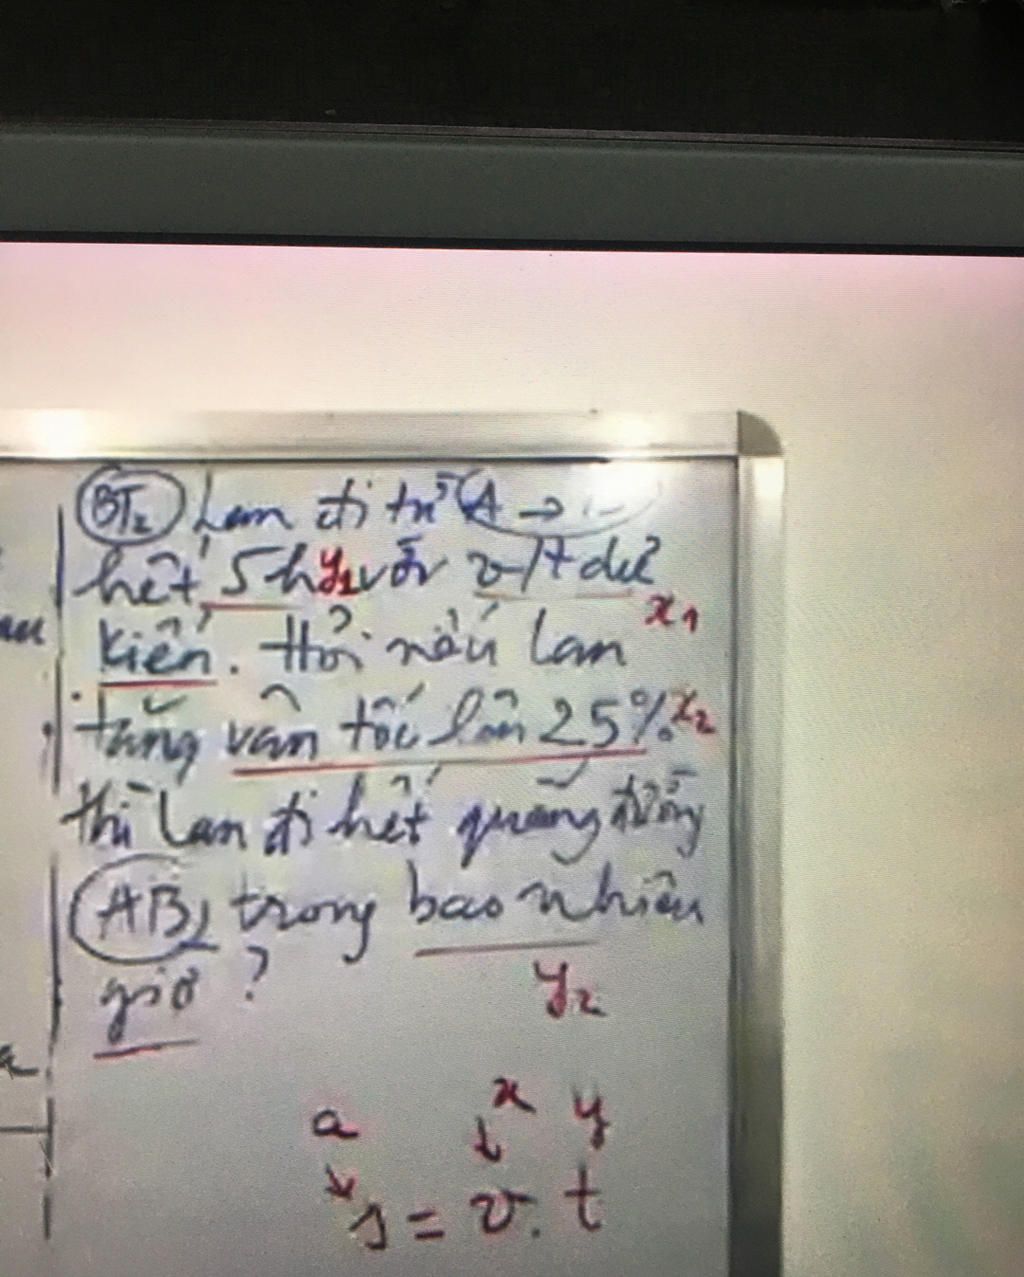 BT2 Lan đi từ A →
hết 5h y1 với v/t dự
kiến. Hỏi nếu Lan x1
tăng vận tốc lên 25% x2
thì Lan đi hết quãng đường
AB trong bao nhiêu
giờ? y2
a x y
s = v. t